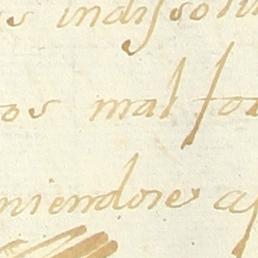 s indissolu
os mal fo
niendose a